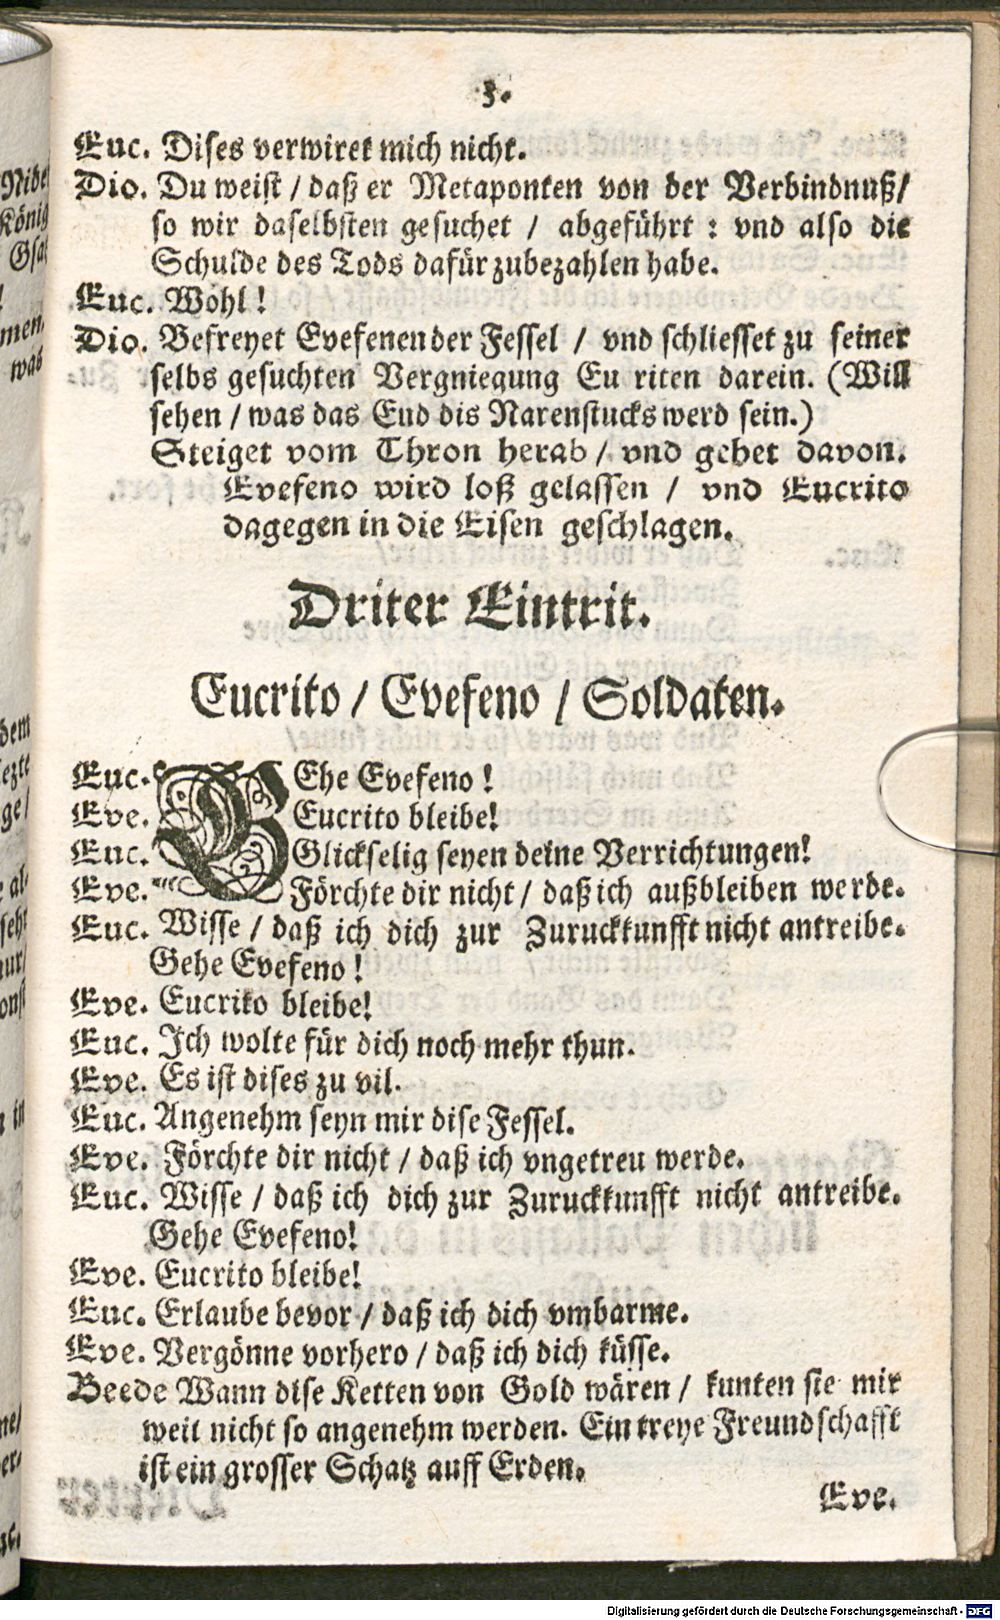 3.
Euc. Dises verwiret mich nicht.
Dio. Du weist / daß er Metaponten von der Verbindnuß/
so wir daselbsten gesuchet / abgeführt : vnd also die
Schulde des Tods dafür zubezahlen habe.
Euc. Wohl !
Dio. Befreyet Evefenen der Fessel / vnd schliesset zu seiner
selbs gesuchten Vergniegung Eu riten darein. (Will
sehen / was das End dis Narenstucks werd sein.)
Steiget vom Thron herab / vnd gehet davon.
Evefeno wird loß gelassen / vnd Eucrito
dagegen in die Eisen geschlagen.
Driter Eintrit.
Eucrito / Evefeno / Soldaten.
Euc. GEhe Evefeno !
Eve. Eucrito bleibe!
Euc. Glickselig seyen deine Verrichtungen!
Eve. Förchte dir nicht / daß ich außbleiben werde.
Euc. Wisse / daß ich dich zur Zuruckkunfft nicht antreibe.
Gehe Evefeno !
Eve. Eucrito bleibe!
Euc. Ich wolte für dich noch mehr thun.
Eve. Es ist dises zu vil.
Euc. Angenehm seyn mir dise Fessel.
Eve. Förchte dir nicht / daß ich vngetreu werde.
Euc. Wisse / daß ich dich zur Zuruckkunfft nicht antreibe.
Gehe Evefeno!
Eve. Eucrito bleibe!
Euc. Erlaube bevor / daß ich dich vmbarme.
Eve. Vergönne vorhero / daß ich dich küsse.
Beede Wann dise Ketten von Gold wären / kunten sie mir
weit nicht so angenehm werden. Ein treye Freundschafft
ist ein grosser Schatz auff Erden.
Eve.
Digitalisierung gefördert durch die Deutsche Forschungsgemeinschaft - DFG